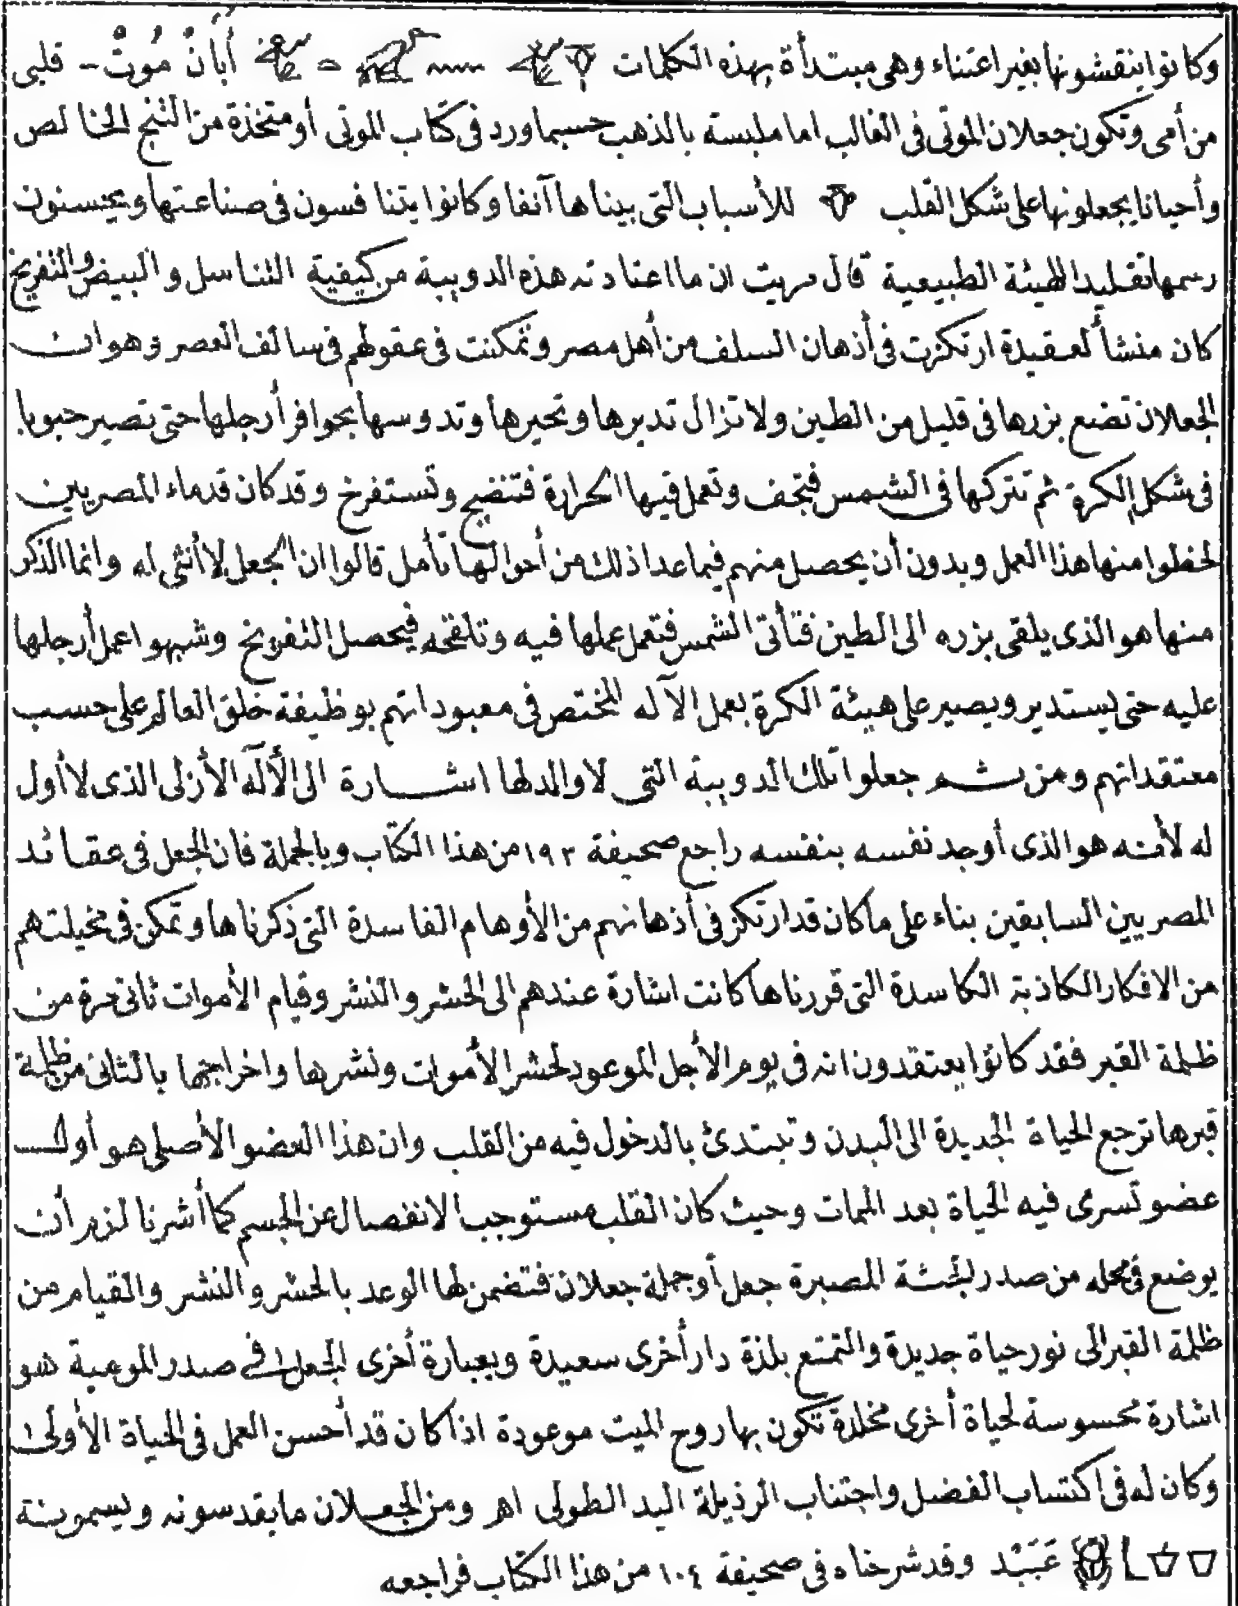 وكانوا ينقشونها بغير اعتناء وهى مبتدأة بهذه الكلمات أَبْاَنْ مُوتْ - قلبى
من أمى وتكون جعلان الموتى فى الغالب اما ملبسته بالذهب حسبما ورد فى كتاب الموتى أو متخذة من الثنج الخالص
وأحيانا يجعلونها على شكل القلب للأسباب التى بيناها آنفا وكانوا يتنافسون فى صناعتها ويحسنون
رسمها تقليدا للهيئة الطبيعية قال مريت ان ما اعتادته هذه الدويبة من كيفية التناسل والبيض والتفريخ
كان منشأ لعقيدة ارتكزت فى أذهان السلف من أهل مصر وتمكنت فى عقولهم فى سالف العصر وهو ان
الجعلان تضع بزرها فى قليل من الطين ولا تزال تديرها وتحيرها وتدوسها بحوافر أرجلها حتى تصير حبوبا
فى شكل الكرة ثم تتركها فى الشمس فتجف وتعمل فيها الحرارة فتنضج وتستفرخ وقد كان قدماء المصريين
لحظوا منها هذا العمل وبدون أن يحصل منهم فيما عدا ذلك من أحوالها تأمل قالوا ان الجعل لا أنثى له وانما الذكر
منها هو الذى يلقى بزره الى الطين فتأتى الشمس فتعمل عملها فيه وتلقحه فيحصل التفريخ وشبهوا عمل أرجلها
عليه حتى يستدير ويصير على هيئة الكرة بعمل الآله المختص فى معبوداتهم بوظيفة خلق العالم على حسب
معتقداتهم ومن ثم جعلوا تلك الدويبة التى لا والد لها اشارة الى الأله الأزلى الذى لا أول
له لأنه هو الذى أوجد نفسه بنفسه راجع صحيفة ١٩٣ من هذا الكتاب وبالجملة فان الجعل فى عقائد
المصريين السابقين بناء على ما كان قد ارتكز فى أذهانهم من الأوهام الفاسدة التى ذكرناها وتمكن فى مخيلتهم
من الافكار الكاذبة الكاسدة التى قررناها كانت اشارة عندهم الى الحشر والنشر وقيام الأموات ثانى مرة من
ظلمة القبر فقد كانوا يعتقدون انه فى يوم الأجل الموعود لحشر الأموات ونشرها واخراجها بالثانى من ظلمة
قبرها ترجع الحياة الجديدة الى البدن وتبتدئ بالدخول فيه من القلب وان هذا العضو الأصلى هو أول
عضو تسرى فيه الحياة بعد الممات وحيث كان القلب مستوجب الانفصال عن الجسم كما أشرنا لزم أن
يوضع فى محله من صدر الجثة المصبرة جعل أو جملة جعلان فتضمن لها الوعد بالحشر والنشر والقيام من
ظلمة القبر الى نور حياة جديدة والتمتع بلذة دار أخرى سعيدة وبعبارة أخرى الجعل فى صدر الموميه هو
اشارة محسوسة لحياة أخرى مخلدة تكون بها روح الميت موعودة اذا كان قد أحسن العمل فى الحياة الأولى
وكان له فى اكتساب الفضل واجتناب الرذيلة اليد الطولى اهـ ومن الجعلان ما يقدسونه ويسمونه
عَبَبْد وقد شرحناه فى صحيفة ١٠٤ من هذا الكتاب فراجعه